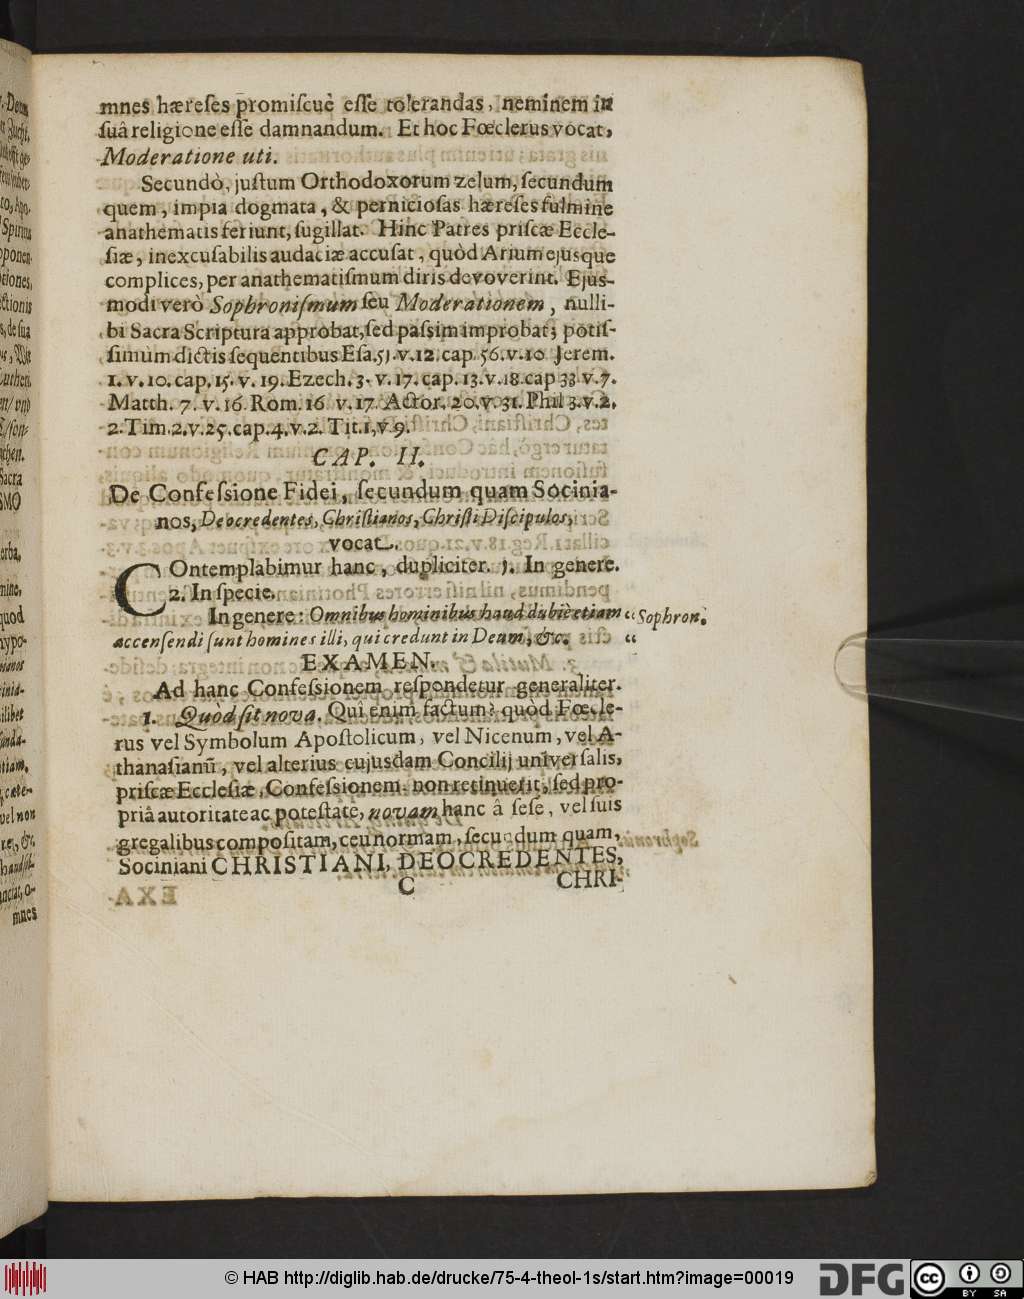 mnes hæreſes promiſcuè eſſe tolerandas, neminem in
ſuâ religione eſſe damnandum. Et hoc Fœclerus vocat,
Moderatione uti.
Secundò, juſtum Orthodoxorum zelum, ſecundum
quem, impia dogmata, & pernicioſas hæreſes fulmine
anathematis feriunt, ſugillat. Hinc Patres priſcæ Eccle-
ſiæ, inexcuſabilis audaciæ accuſat, quòd Arium ejusque
complices, per anathematiſmum diris devoverint. Ejus-
modi verò Sophroniſmum ſeu Moderationem, nulli-
bi Sacra Scriptura approbat, ſed paſsim improbat; potiſ-
ſimùm dictis ſequentibus Eſa. 51. v. 12. cap. 56. v. 10 Jerem.
1. v. 10. cap. 15. v. 19. Ezech. 3. v. 17. cap. 13. v. 18. cap 33 v. 7.
Matth. 7. v. 16 Rom. 16 v. 17. Actor. 20. v. 31. Phil 3. v. 2.
2. Tim. 2. v. 25. cap. 4. v. 2. Tit. 1, v 9.
CAP. II.
De Confeſsione Fidei, ſecundum quam Socinia-
nos, Deocredentes, Chriſtianos, Chriſti Diſcipulos,
vocat.
COntemplabimur hanc, dupliciter. 1. In genere.
2. In ſpecie.
In genere: Omnibus hominibus haud dubiè etiam “ Sophron.
accenſendi ſunt homines illi, qui credunt in Deum, &c. “
EXAMEN.
Ad hanc Confeſsionem reſpondetur generaliter.
1. Quòd ſit nova. Quî enim factum? quòd Fœcle-
rus vel Symbolum Apoſtolicum, vel Nicenum, vel A-
thanaſianũ, vel alterius cujusdam Concilij univerſalis,
priſcæ Eccleſiæ, Confeſsionem non retinuerit, ſed pro-
priâ autoritate ac poteſtate, novam hanc â ſeſe, vel ſuis
gregalibus compoſitam, ceu normam, ſecundum quam,
Sociniani CHRISTIANI, DEOCREDENTES,
C CHRI-
© HAB http://diglib.hab.de/drucke/75-4-theol-1s/start.htm?image=00019
DFG
cc BY SA